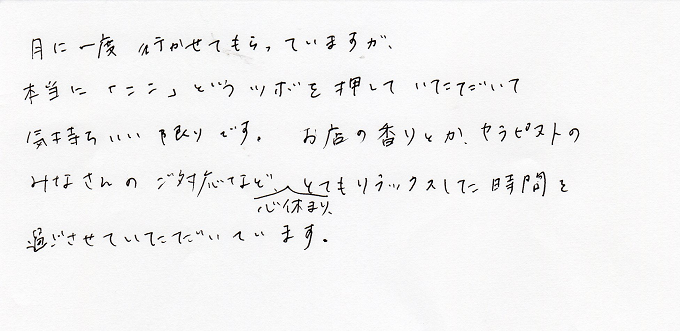 月に一度 行かせてもらっていますが、
本当に「ここ」というツボを押していただいて
気持ちいい限りです。 お店の香りとか、セラピストの
みなさんのご対応など、とてもリラックスした時間を
心休まり、
過ごさせていただいています。